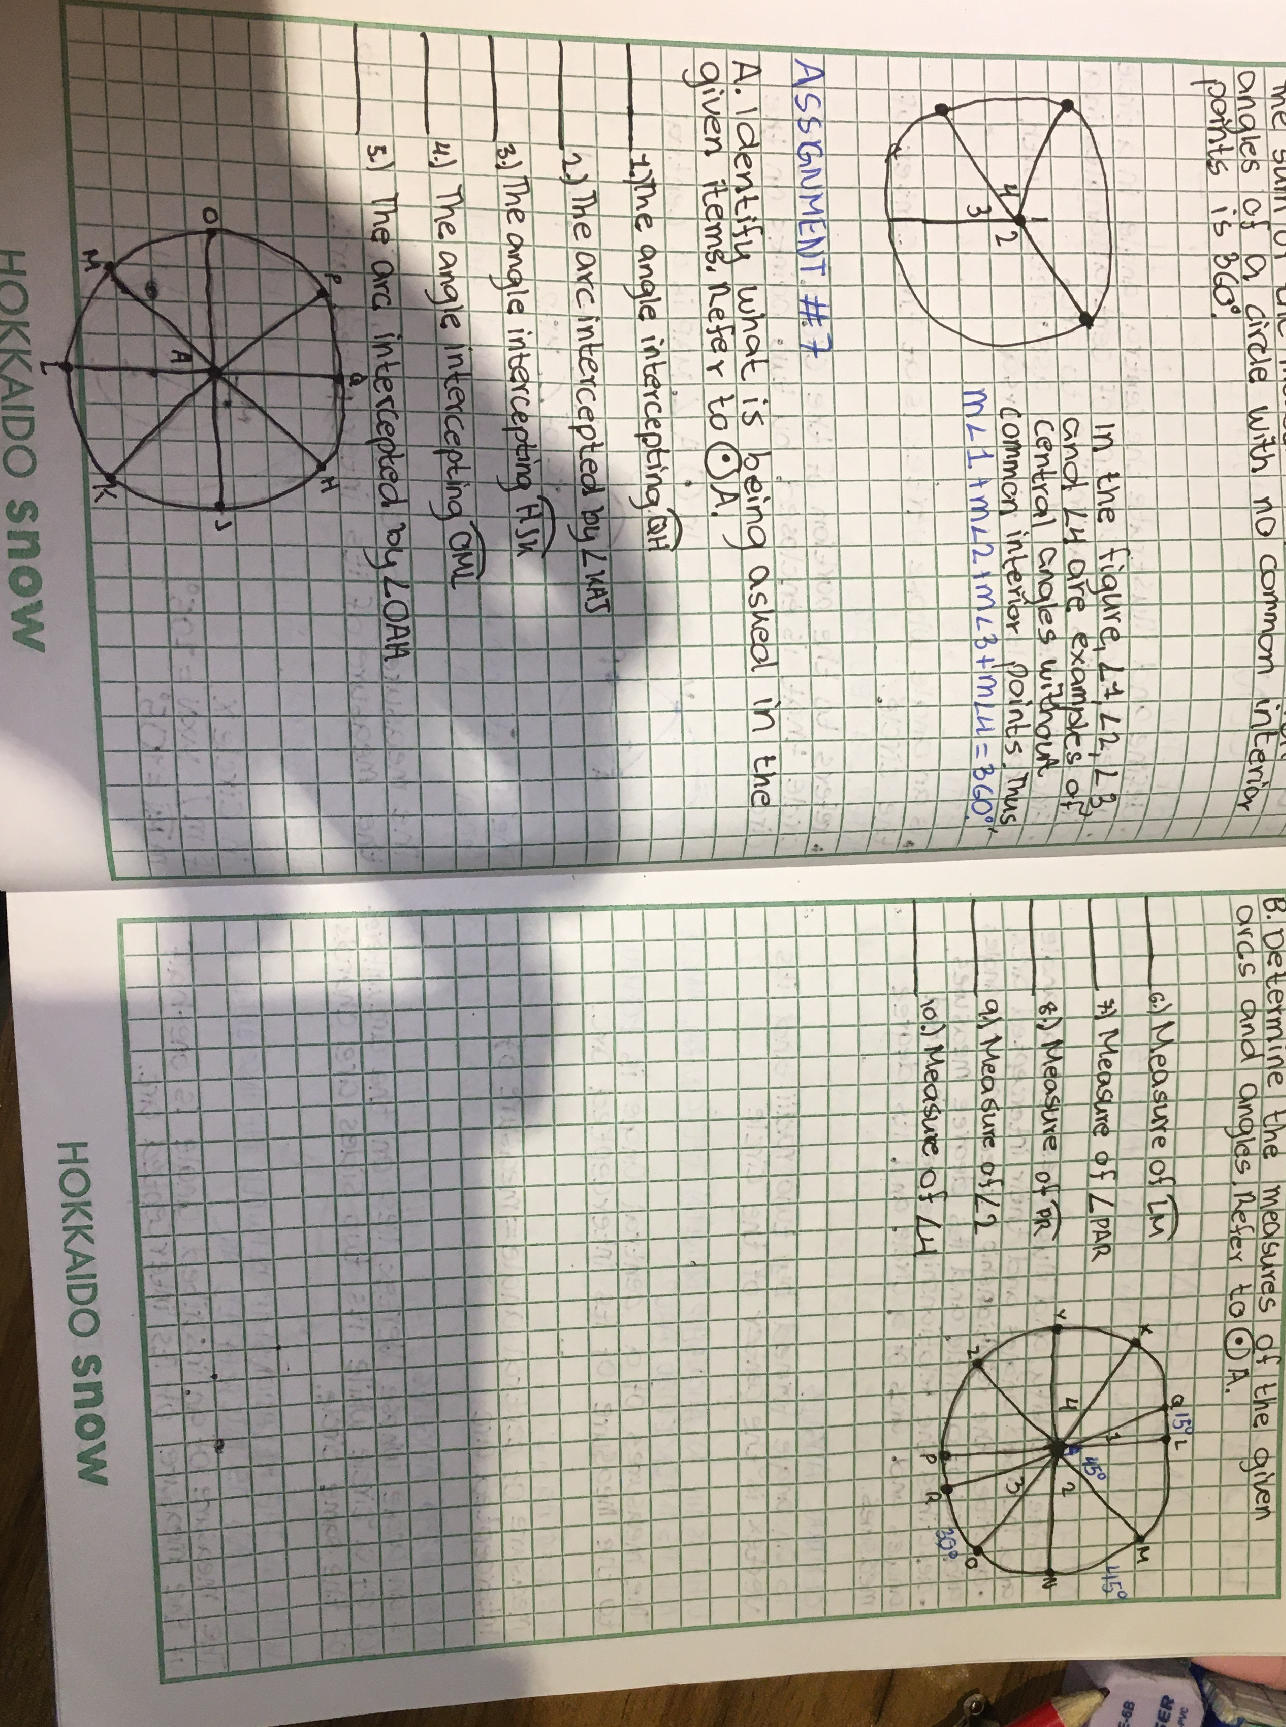 angles of a circle with no common interior
points is 360°.
1
2
3
4
In the figure, ∠1, ∠2, ∠3
and ∠4 are examples of
central angles without
common interior points. Thus
m∠1 + m∠2 + m∠3 + m∠4 = 360°.
ASSGNMENT #7
A. Identify what is being asked in the
given items. Refer to ⊙A.
1.) The angle intercepting QH
2.) The arc intercepted by ∠KAJ
3.) The angle intercepting HJK
4.) The angle intercepting OML
5.) The arc intercepted by ∠OAH
P
Q
H
O
A
J
M
L
K
HOKKAIDO snow
B. Determine the measures of the given
arcs and angles. Refer to ⊙A.
6.) Measure of LM
7.) Measure of ∠PAR
8.) Measure of PR
9.) Measure of ∠2
10.) Measure of ∠4
Q 15° L
X
1
M
45°
Y
4
A
45°
2
N
Z
3
O
P
R
30°
HOKKAIDO snow